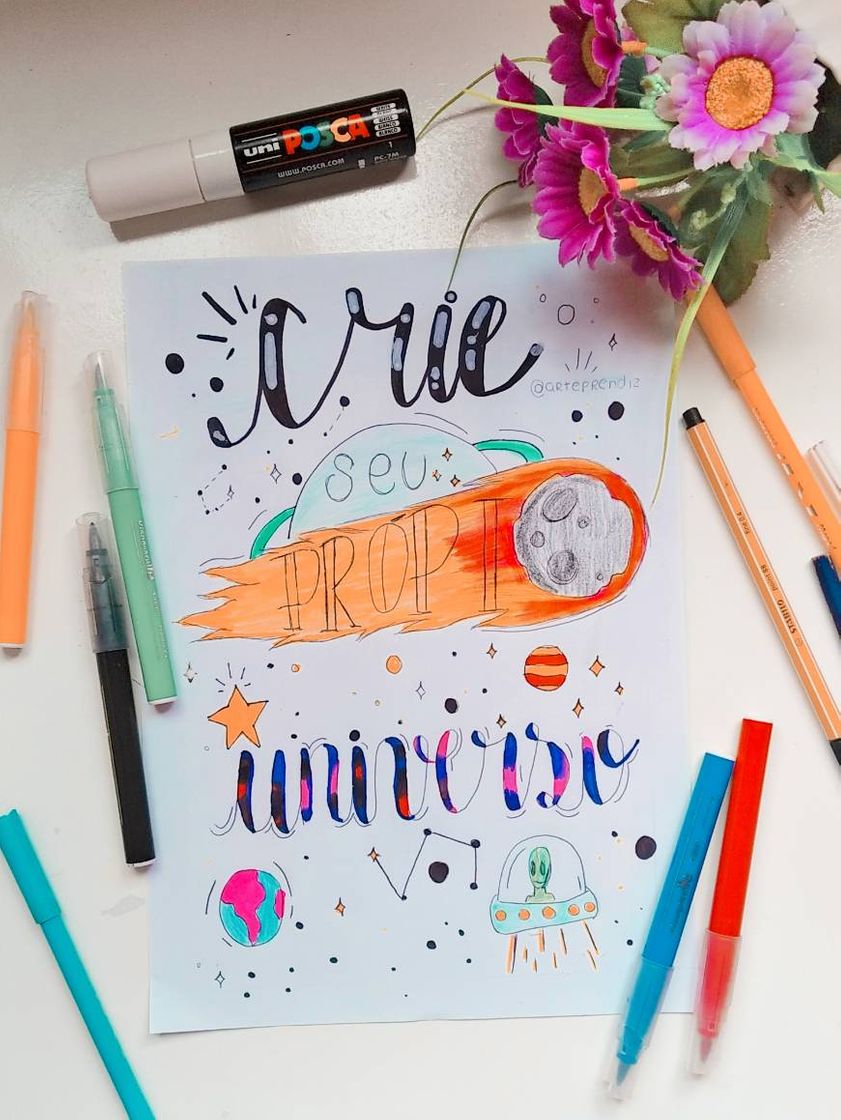 uni POSCA
1
WWW.POSCA.COM PC-7M
Crie
@arteprendiz
seu
PRÓPIO
universo
STABILO